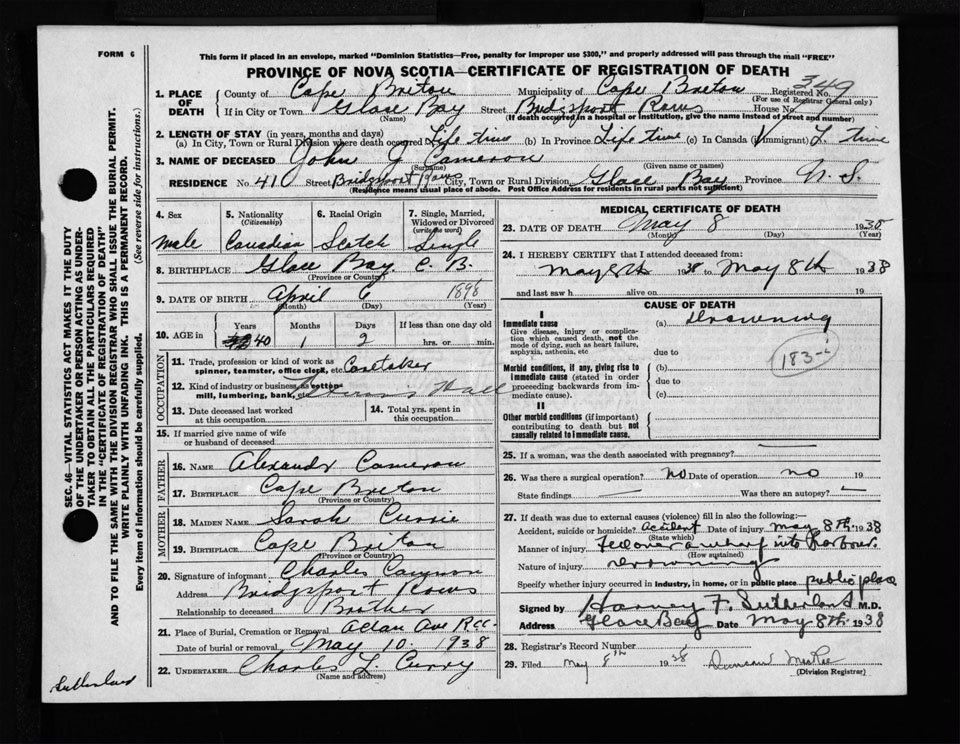 FORM 6
This form if placed in an envelope, marked "Dominion Statistics—Free, penalty for improper use $300," and properly addressed will pass through the mail "FREE"
PROVINCE OF NOVA SCOTIA—CERTIFICATE OF REGISTRATION OF DEATH
1. PLACE OF DEATH County of Cape Breton Municipality of Cape Breton Registered No. 349
(For use of Registrar General only)
If in City or Town Glace Bay Street Bridgeport Rows House No.
(Name) (If death occurred in a hospital or institution, give the name instead of street and number)
2. LENGTH OF STAY (in years, months and days)
(a) In City, Town or Rural Division where death occurred Life time (b) In Province Life time (c) In Canada (if immigrant) L. time
3. NAME OF DECEASED John J Cameron
(Surname) (Given name or names)
RESIDENCE No. 41 Street Bridgeport Rows City, Town or Rural Division Glace Bay Province N. S.
(Residence means usual place of abode. Post Office Address for residents in rural parts not sufficient)
4. Sex male
5. Nationality (Citizenship) Canadian
6. Racial Origin Scotch
7. Single, Married, Widowed or Divorced (write the word) Single
8. BIRTHPLACE Glace Bay. C. B.
(Province or Country)
9. DATE OF BIRTH April 6 1898
(Month) (Day) (Year)
10. AGE in Years 40 Months 1 Days 2 If less than one day old hrs. or min.
OCCUPATION
11. Trade, profession or kind of work as spinner, teamster, office clerk, etc Caretaker
12. Kind of industry or business, as cotton-mill, lumbering, bank, etc Hall
13. Date deceased last worked at this occupation
14. Total yrs. spent in this occupation
15. If married give name of wife or husband of deceased
FATHER
16. NAME Alexandr Cameron
17. BIRTHPLACE Cape Breton
(Province or Country)
MOTHER
18. MAIDEN NAME Sarah Currie
19. BIRTHPLACE Cape Briton
(Province or Country)
20. Signature of informant Charles Cameron
Address Bridgeport Rows
Relationship to deceased Brother
21. Place of Burial, Cremation or Removal Allan Ave R.C.
Date of burial or removal May 10 1938
22. UNDERTAKER Charles L Curry
(Name and address)
MEDICAL CERTIFICATE OF DEATH
23. DATE OF DEATH May 8 1938
(Month) (Day) (Year)
24. I HEREBY CERTIFY that I attended deceased from:
May 8th 1938 to May 8th 1938
and last saw h alive on 19
CAUSE OF DEATH
I
Immediate cause (a) Drowning
Give disease, injury or complication which caused death, not the mode of dying, such as heart failure, asphyxia, asthenia, etc
due to
183-i
Morbid conditions, if any, giving rise to immediate cause (stated in order proceeding backwards from immediate cause).
(b)
due to
(c)
II
Other morbid conditions (if important) contributing to death but not causally related to immediate cause.
25. If a woman, was the death associated with pregnancy? —
26. Was there a surgical operation? no Date of operation no 19
State findings — Was there an autopsy? —
27. If death was due to external causes (violence) fill in also the following:—
Accident, suicide or homicide? Accident Date of injury May 8th 1938
(State which)
Manner of injury fell over a wharf into harbour
(How sustained)
Nature of injury Drowning
Specify whether injury occurred in industry, in home, or in public place public place
Signed by Harvey F. Sutherland M.D.
Address Glace Bay Date May 8th 1938
28. Registrar's Record Number
29. Filed May 8th 1938 Duncan
(Division Registrar)
SEC. 46—VITAL STATISTICS ACT MAKES IT THE DUTY OF THE UNDERTAKER OR PERSON ACTING AS UNDERTAKER TO OBTAIN ALL THE PARTICULARS REQUIRED IN THE "CERTIFICATE OF REGISTRATION OF DEATH" AND TO FILE THE SAME WITH THE DIVISION REGISTRAR WHO SHALL ISSUE THE BURIAL PERMIT.
WRITE PLAINLY WITH UNFADING INK. THIS IS A PERMANENT RECORD.
Every item of information should be carefully supplied. (See reverse side for instructions.)
Sutherland